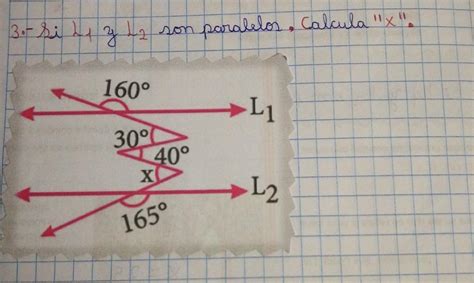 3.- Si L1 y L2 son paralelos. Calcula "x".
160°
L1
30°
40°
x
L2
165°